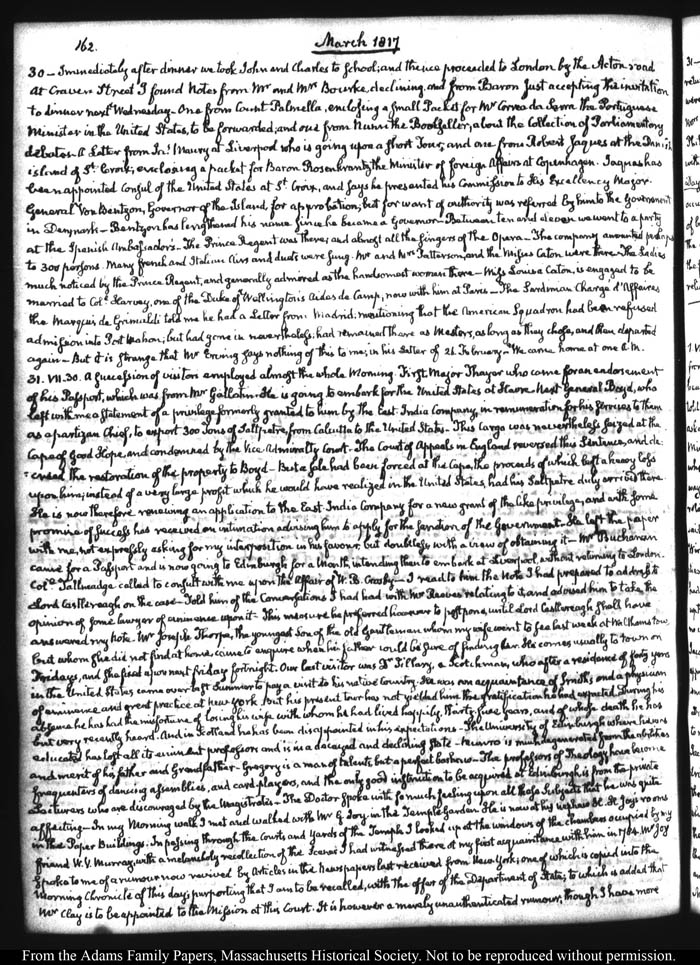 162.
March 1817
30 — Immediately after dinner we took John and Charles to School; and thence proceeded to London by the Acton road
At Craven Street I found Notes from Mr and Mrs Bourke, declining, and from Baron Just accepting the invitation
to dinner next Wednesday — One from Count Palmella, enclosing a small Packet for Mr Correa da Serra the Portuguese
Minister in the United States, to be forwarded; and one from Nunn the Bookseller, about the Collection of Parliamentary
debates — A Letter from Js: Maury at Liverpool who is going upon a short Tour; and one from Robert Jaques at the Danish
island of St. Croix, enclosing a packet for Baron Rosenkrantz the Minister of foreign Affairs at Copenhagen. Jaques has
been appointed Consul of the United States at St Croix, and says he presented his Commission to His Excellency Major
General Von Bentzon, Governor of the Island, for approbation; but for want of authority was referred by him to the Government
in Denmark — Bentzon has lengthened his name since he became a Governor — Between ten and eleven we went to a party
at the Spanish Ambassador's — The Prince Regent was there; and almost all the singers of the Opera — The company amounted perhaps
to 300 persons. Many french and Italian Airs and duets were sung. Mr and Mrs Patterson, and the Misses Caton were there. The Ladies
much noticed by the Prince Regent, and generally admired as the handsomest women there — Miss Louisa Caton, is engaged to be
married to Coll. Harvey, one of the Duke of Wellington's Aides de Camp, now with him at Paris — The Sardinian Chargé d'Affaires
the Marquis de Grimaldi told me he had a Letter from Madrid, mentioning that the American Squadron had been refused
admission into Port Mahon; but had gone in nevertheless; had remained there as Masters, as long as they chose, and then departed
again — But it is strange that Mr Erving says nothing of this to me, in his Letter of 21 February — We came home at one A.M.
31. VII.30. A succession of visitors employed almost the whole Morning. First Major Thayer who came for an endorsement
of his Passport, which was from Mr Gallatin. He is going to embark for the United States at Havre. Next General Boyd, who
left with me a statement of a privilege formerly granted to him by the East India Company, in remuneration for his Services to them
as a partizan Chief, to export 300 Tons of Saltpetre, from Calcutta to the United States. This Cargo was nevertheless seized at the
Cape of good Hope, and condemned by the Vice Admiralty Court — The Court of Appeals in England reversed this Sentence, and de-
-creed the restoration of the property to Boyd — But a sale had been forced at the Cape, the proceeds of which left a heavy loss
upon him, instead of a very large profit which he would have realized in the United States, had his Saltpetre duly arrived there.
He is now therefore renewing an application to the East India Company for a new grant of the like privilege, and with some
promise of success has received an intimation advising him to apply for the sanction of the Government. He left the paper
with me, not expressly asking for my interposition in his favour, but doubtless with a view of obtaining it — Mr Buchanan
came for a Passport and is now going to Edinburgh for a Month, intending then to embark at Liverpool, without returning to London.
Coll. Tallmadge called to consult with me upon the affair of W. B. Crosby — I read to him the Note I had prepared to address to
Lord Castlereagh on the case — Told him of the Conversations I had had with Mr Reeves relating to it and advised him to take the
opinion of some lawyer of eminence upon it — This measure he preferred however to postpone, until Lord Castlereagh shall have
answered my Note. Mr Joseph Thorpe, the youngest Son of the old Gentleman whom my wife went to see last week at Walthamstow,
but whom she did not find at home, came to enquire when his father could be sure of finding her. He comes usually to town on
Fridays, and she fixed upon next friday fortnight. Our last visitor was Dr Tillary, a Scotchman, who after a residence of forty years
in the United States came over last Summer to pay a visit to his native Country. He was an acquaintance of Smith's and a physician
of eminence and great practice at New York. But his present tour has not yielded him the gratification he had expected. During his
absence he has had the misfortune of losing his wife with whom he had lived happily, thirty three years, and of whose death he has
but very recently heard. And in Scotland he has been disappointed in his expectations — The University of Edinburgh where he was
educated has lost all its eminent professors and is in a decayed and declining state — Munro is much degenerated from the abilities
and merit of his father and Grandfather — Gregory is a man of talents but a perfect — The professors of Theology have become
frequenters of dancing assemblies, and card players, and the only good instruction to be acquired at Edinburgh is from the private
Lecturers who are discouraged by the Magistrates — The Doctor spoke with so much feeling upon all these subjects that he was quite
affecting — In my Morning walk I met and walked with Mr G. Joy, in the Temple Garden. He is now at his nephew H. H. Joy's rooms
in the Paper Buildings. In passing through the Courts and Yards of the Temple I looked up at the windows of the chambers occupied by my
friend W. V. Murray, with a melancholy recollection of the Scenes I had witnessed there at my first acquaintance with him in 1784. Mr Joy
spoke to me of a rumour now revived by Articles in the Newspapers last received from New York; one of which is copied into the
Morning Chronicle of this day; purporting that I am to be recalled, with the offer of the Department of State; to which is added that
Mr Clay is to be appointed to the Mission at this Court. It is however a merely unauthenticated rumour, though I have more
From the Adams Family Papers, Massachusetts Historical Society. Not to be reproduced without permission.